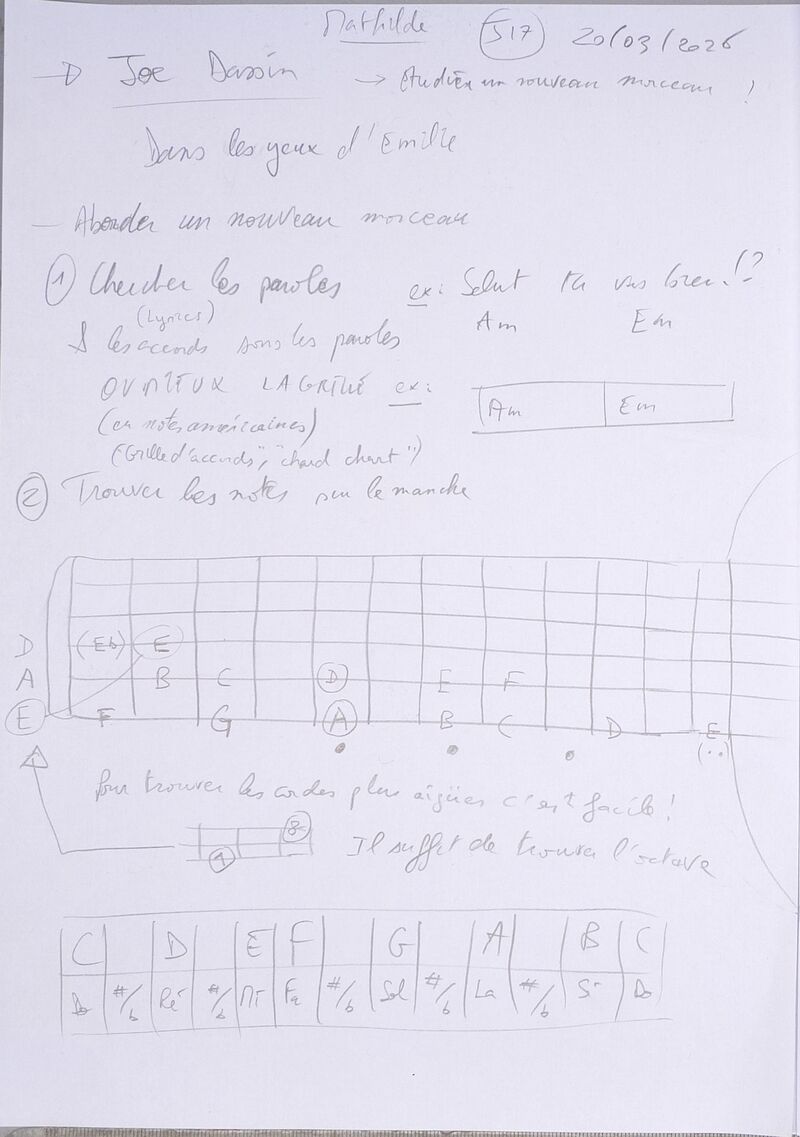 Mathilde S17 20/03/2026
→ Joe Dassin → étudier un nouveau morceau !
Dans les yeux d'Emilie
— Aborder un nouveau morceau
① Chercher les paroles ex: Salut tu vas bien !?
(Lyrics) Am Em
& les accords sous les paroles
OU MIEUX LA GRILLE ex: Am Em
(en notes américaines)
("Grille d'accords", "chord chart")
② Trouver les notes sur le manche
D (Eb) E
A B C D E F
E F G A B C D E
(..)
Pour trouver les cordes plus aigües c'est facile !
1 8 Il suffit de trouver l'octave
C D E F G A B C
Do #/b Ré #/b Mi Fa #/b Sol #/b La #/b Si Do